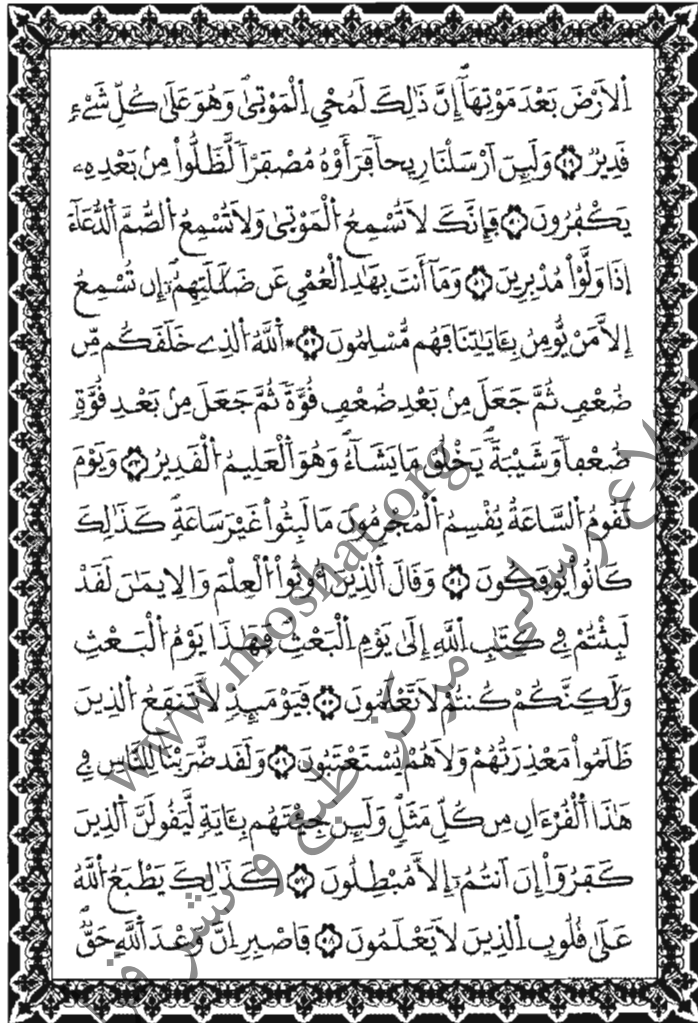 اِ۬لَارْضَ بَعْدَ مَوْتِهَآۖ إِنَّ ذَٰلِكَ لَمُحْيِ اِ۬لْمَوْت۪يٰۖ وَهُوَ عَلَىٰ كُلِّ شَےْءٖ
قَدِيرٞۖ ٤٩ وَلَئِنَ اَرْسَلْنَا رِيحاٗ فَرَأَوْهُ مُصْفَرّاٗ لَّظَلُّواْ مِنۢ بَعْدِهِۦ
يَكْفُرُونَۖ ٥٠ فَإِنَّكَ لَا تُسْمِعُ اُ۬لْمَوْت۪يٰ وَلَا تُسْمِعُ اُ۬لصُّمَّ اَ۬لدُّعَآءَ
اِذَا وَلَّوْاْ مُدْبِرِينَۖ ٥١ وَمَآ أَنتَ بِهَٰدِ اِ۬لْعُمْيِ عَن ضَلَٰلَتِهِمُۥٓ إِن تُسْمِعُ
إِلَّا مَنْ يُّومِنُ بِـَٔايَٰتِنَا فَهُم مُّسْلِمُونَۖ ٥٢ ۞ اَ۬للَّهُ اُ۬لذِے خَلَقَكُم مِّن
ضُعْفٖ ثُمَّ جَعَلَ مِنۢ بَعْدِ ضُعْفٖ قُوَّةٗ ثُمَّ جَعَلَ مِنۢ بَعْدِ قُوَّةٖ
ضُعْفاٗ وَشَيْبَةٗۖ يَخْلُقُ مَا يَشَآءُۖ وَهُوَ اَ۬لْعَلِيمُ اُ۬لْقَدِيرُۖ ٥٣ وَيَوْمَ
تَقُومُ اُ۬لسَّاعَةُ يُقْسِمُ اُ۬لْمُجْرِمُونَ مَا لَبِثُواْ غَيْرَ سَاعَةٖۖ كَذَٰلِكَ
كَانُواْ يُوفَكُونَۖ ٥٤ وَقَالَ اَ۬لذِينَ أُوتُواْ اُ۬لْعِلْمَ وَالِايمَٰنَ لَقَدْ
لَبِثْتُمْ فِے كِتَٰبِ اِ۬للَّهِ إِلَىٰ يَوْمِ اِ۬لْبَعْثِۖ فَهَٰذَا يَوْمُ اُ۬لْبَعْثِ
وَلَٰكِنَّكُمْ كُنتُمْ لَا تَعْلَمُونَۖ ٥٥ فَيَوْمَئِذٖ لَّا تَنفَعُ اُ۬لذِينَ
ظَلَمُواْ مَعْذِرَتُهُمْ وَلَا هُمْ يُسْتَعْتَبُونَۖ ٥٦ وَلَقَد ضَّرَبْنَا لِلنَّاسِ فِے
هَٰذَا اَ۬لْقُرْءَانِ مِن كُلِّ مَثَلٖۖ وَلَئِن جِئْتَهُم بِـَٔايَةٖ لَّيَقُولَنَّ اَ۬لذِينَ
كَفَرُوٓاْ إِنَ اَنتُمُۥٓ إِلَّا مُبْطِلُونَۖ ٥٧ كَذَٰلِكَ يَطْبَعُ اُ۬للَّهُ
عَلَىٰ قُلُوبِ اِ۬لذِينَ لَا يَعْلَمُونَۖ ٥٨ فَاصْبِرِ اِنَّ وَعْدَ اَ۬للَّهِ حَقّٞۖ
www.moshaf.org
لاع رسانی مرکز طبع و نشر قر